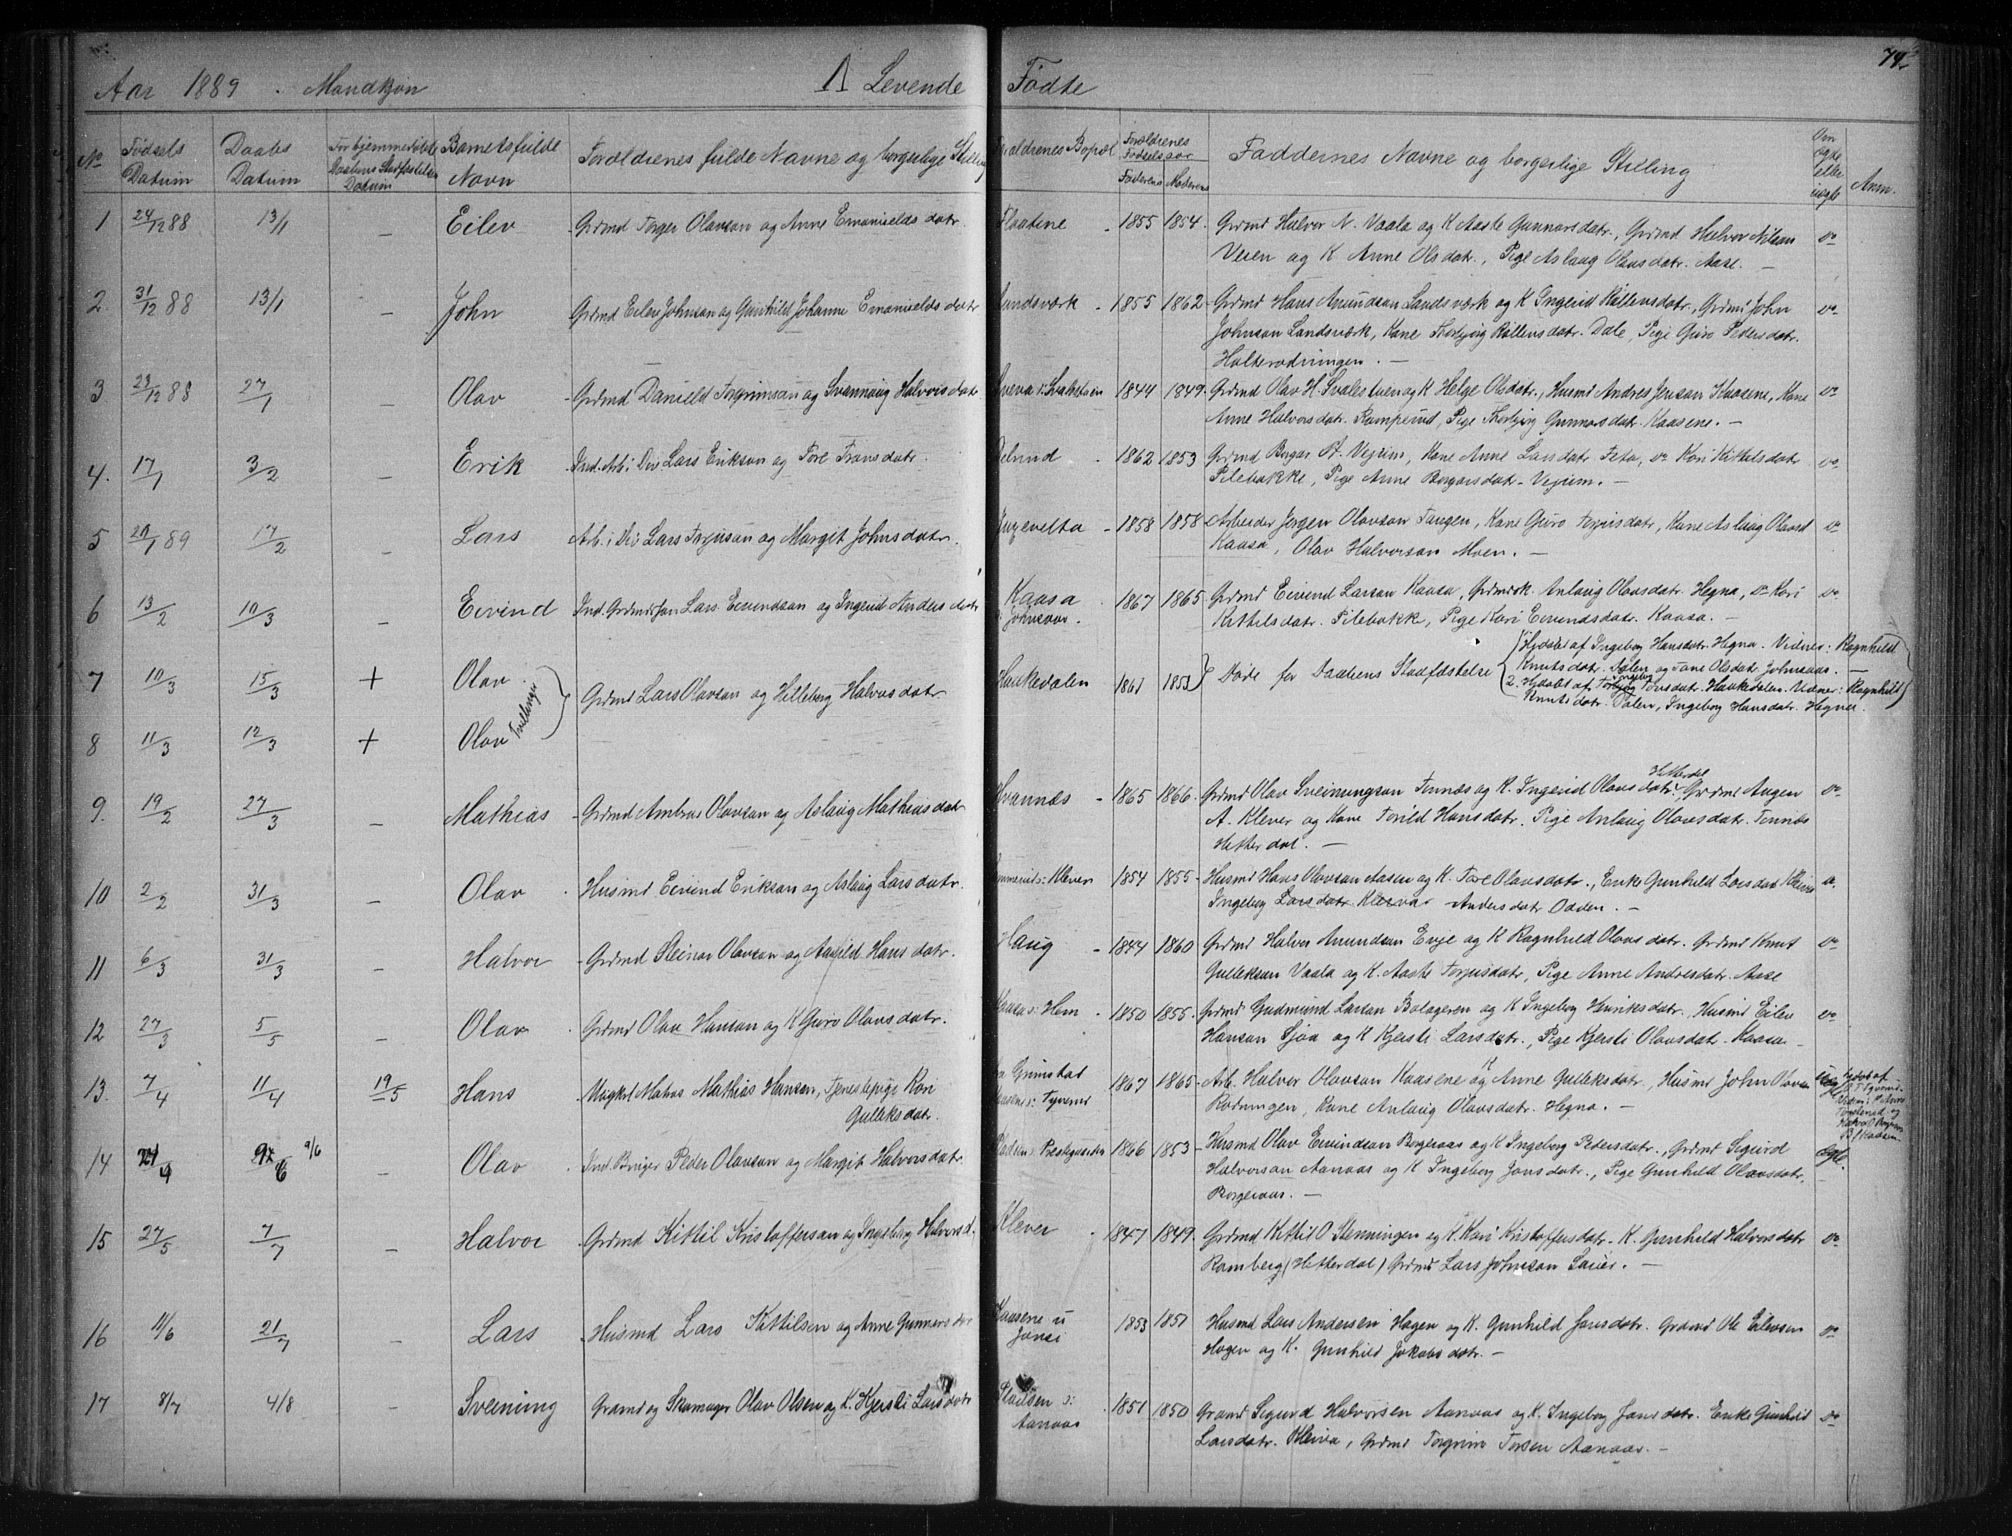 74
Aar 1889. Mandkjøn A Levende Fødte
No Fødsels Datum Daabs Datum For hjemmedøbte Daabens Stadfæstelses Datum Barnets fulde Navn Forældrenes fulde Navne og borgerlige Stilling Forældrenes Bopæl Forældrenes Fødselsaar Faderens Moderens Faddernes Navne og borgerlige Stilling Om ægte eller uægte Anm.
1 24/12 88 13/1 - Eilev Grdmd Torger Olavson og Anne Emanuelds datr. Flaatene 1855 1854 Grdmd Halvor N. Vaala og K Aaste Gunnarsdatr., Grdmd Halvor Nilsen do
Veien og K Anne Olsdatr., Pige Aslaug Olavsdatr. Aase. -
2 31/12 88 13/1 - John Grdmd Eilev Johnson og Gunhild Johanne Emanuelds datr Landsværk 1855 1862 Grdmd Hans Amundson Landsværk og K Ingerid Rollevsdatr., Grdmd John do
Johnson Landsværk, Kone Thorbjørg Rollevsdatr. Dale, Pige Guro Pedersdatr.
Holterødningen. -
3 23/12 88 27/1 Olav Grdmd Danield Torgrimson og Svannaug Halvorsdatr Sveva u: Svalestuen 1844 1849 Grdmd Olav H. Svalestuen og K Helge Olsdatr., Husmd Andres Jensen Kaasene, Kone do
Anne Halvorsdatr. Ramperud, Pige Thorbjørg Gunnarsdatr. Kaasene. -
4. 17/1 3/2 - Erik Ind. Arb. i Div Lars Erikson og Tore Tronsdatr. 1862 1853 Grdmd Borgar A. Vejrim, Kone Anne Larsdatr. Feta, do Kari Kittelsdatr do
Pilebakke, Pige Anne Borgarsdatr. Vejrim. -
5 20/1 89 17/2 Lars Arb. i Div Lars Torjuson og Margit Johnsdatr. 1858 1858 Arbeider Jørgen Olavson Tangen, Kone Guro Torjusdatr, Kone Aslaug Olavsd do
Kaasa, Olav Halvorson Moen. -
6 13/2 10/3 - Eivind Ind. Lars Eivindson og Ingerid Anders datr Kaasa Johnsaas. 1867 1865 Grdmd Eivind Larson Kaasa, Anlaug Olavsdatr. Hegna, do Kari do
Kittelsdatr. Pilebakke, Pige Kari Eivindsdatr. Kaasa. -
7 10/3 15/3 + Olav Tvillinger Grdmd Lars Olavson og Hilleborg Halvorsdatr Haukedalen 1861 1853 Døde før Daabens Stadfæstelse Hjdøbt af Ingeborg Hansdatr Hegna. Vidner: Ragnhild
Knutsdatr. Dalen og Tone Olsdatr Johnsaas. -
2. Hjdøbt af Torsdatr. Haukedalen. Vidner: Ragnhild
Knutsdatr. Dalen, Ingeborg Hansdatr. Hegna.
8 11/3 12/3 + Olav
9. 19/2 27/3 - Mathias Grdmd Ambros Olavson og Aslaug Mathiasdatr Hvannæs 1865 1866 Grdmd Olav Sveinungson Tennæs og K. Ingerid Olavsdatr. Hitterdal, Grdmd Augen do
A. Klever og Kone Torild Hansdatr. Pige Anlaug Olavsdatr. Tennæs
Hitterdal. -
10 2/2 31/3 - Olav Husmd Eivind Erikson og Aslaug Larsdatr. u: Klever 1854 1855 Husmd Hans Olavson Aasen og K. Tore Olavsdatr., Enke Gunhild Larsdatr Kleiva do
Ingeborg Larsdatr. Kleiva Andersdatr Odden. -
11 6/3 31/3 - Halvor Grdmd Steinar Olavson og Aasild Hansdatr. Haug 1844 1860 Grdmd Halvor Amundson Evje og K Ragnhild Olavsdatr. Grdmd Knut do
Gullekson Vaala og K. Aaste Torjusdatr, Pige Anne Andresdatr. Aase
12 27/3 5/5 - Olav Grdmd Olav Hanson og K Guro Olavsdatr. Kaasa u: Hem 1850 1855 Grdmd Gudmund Larson Bolageren og K Ingeborg Hinriksdatr, Husmd Eilev do
Hanson Sjøa og K Kjersti Larsdatr., Pige Kjersti Olavsdatr. Kaasa. -
13. 7/4 11/4 19/5 Hans Ungkrl Matros Mathias Hansen, Tjenestepige Kari
Gulleksdatr. Grimstad Kaasene u: Tyverud 1867 1865 Arb. Halvor Olavson Kaasene og K Anne Gulleksdatr, Husmd John Olavson uægte
Rødningen, Kone Anlaug Olavsdatr. Hegna. -
14 4 6 9/6 - Olav Ind. Peder Olavson og Margit Halvorsdatr. Prestegaarden 1866 1853 Husmd Olav Eivindson Borgeraas og K Ingeborg Petersdatr., Grdmd Sigurd ægte
Halvorson Aanaas og K Ingeborg Jonsdatr., Pige Gunhild Olavsdatr,
Borgeraas. -
15 27/5 7/7 - Halvor Grdmd Kittil Kristofferson og Ingeborg Halvorsd. Klever 1847 1849 Grdmd Kittil O Stenningen og K. Kari Kristoffersdatr. K. Gunhild Halvorsdatr do
Ramberg (Hitterdal) Grdmd Lars Johnson Sauer. -
16 11/6 21/7 - Lars Husmd Lars Kittilsen og Anne Gunnars dtr Kaasene u Jønsi 1853 1851 Husmd Lars Andersen Hagen og K. Gunhild Jonsdatr. Grdmd Ole Eilevsen do
Hagen og K. Gunhild Jakobsdatr. -
17 8/7 4/8 - Sveinung Grdmd og Skomager Olav Olsen og K. Kjersti Larsdatr Pladsen u: Aanaas 1851 1850 Grdmd Sigurd Halvorsen Aanaas og K. Ingeborg Jonsdatr. Enke Gunhild do
Larsdatr. Kleiva, Grdmd Torgrim Torsen Aanaas. -